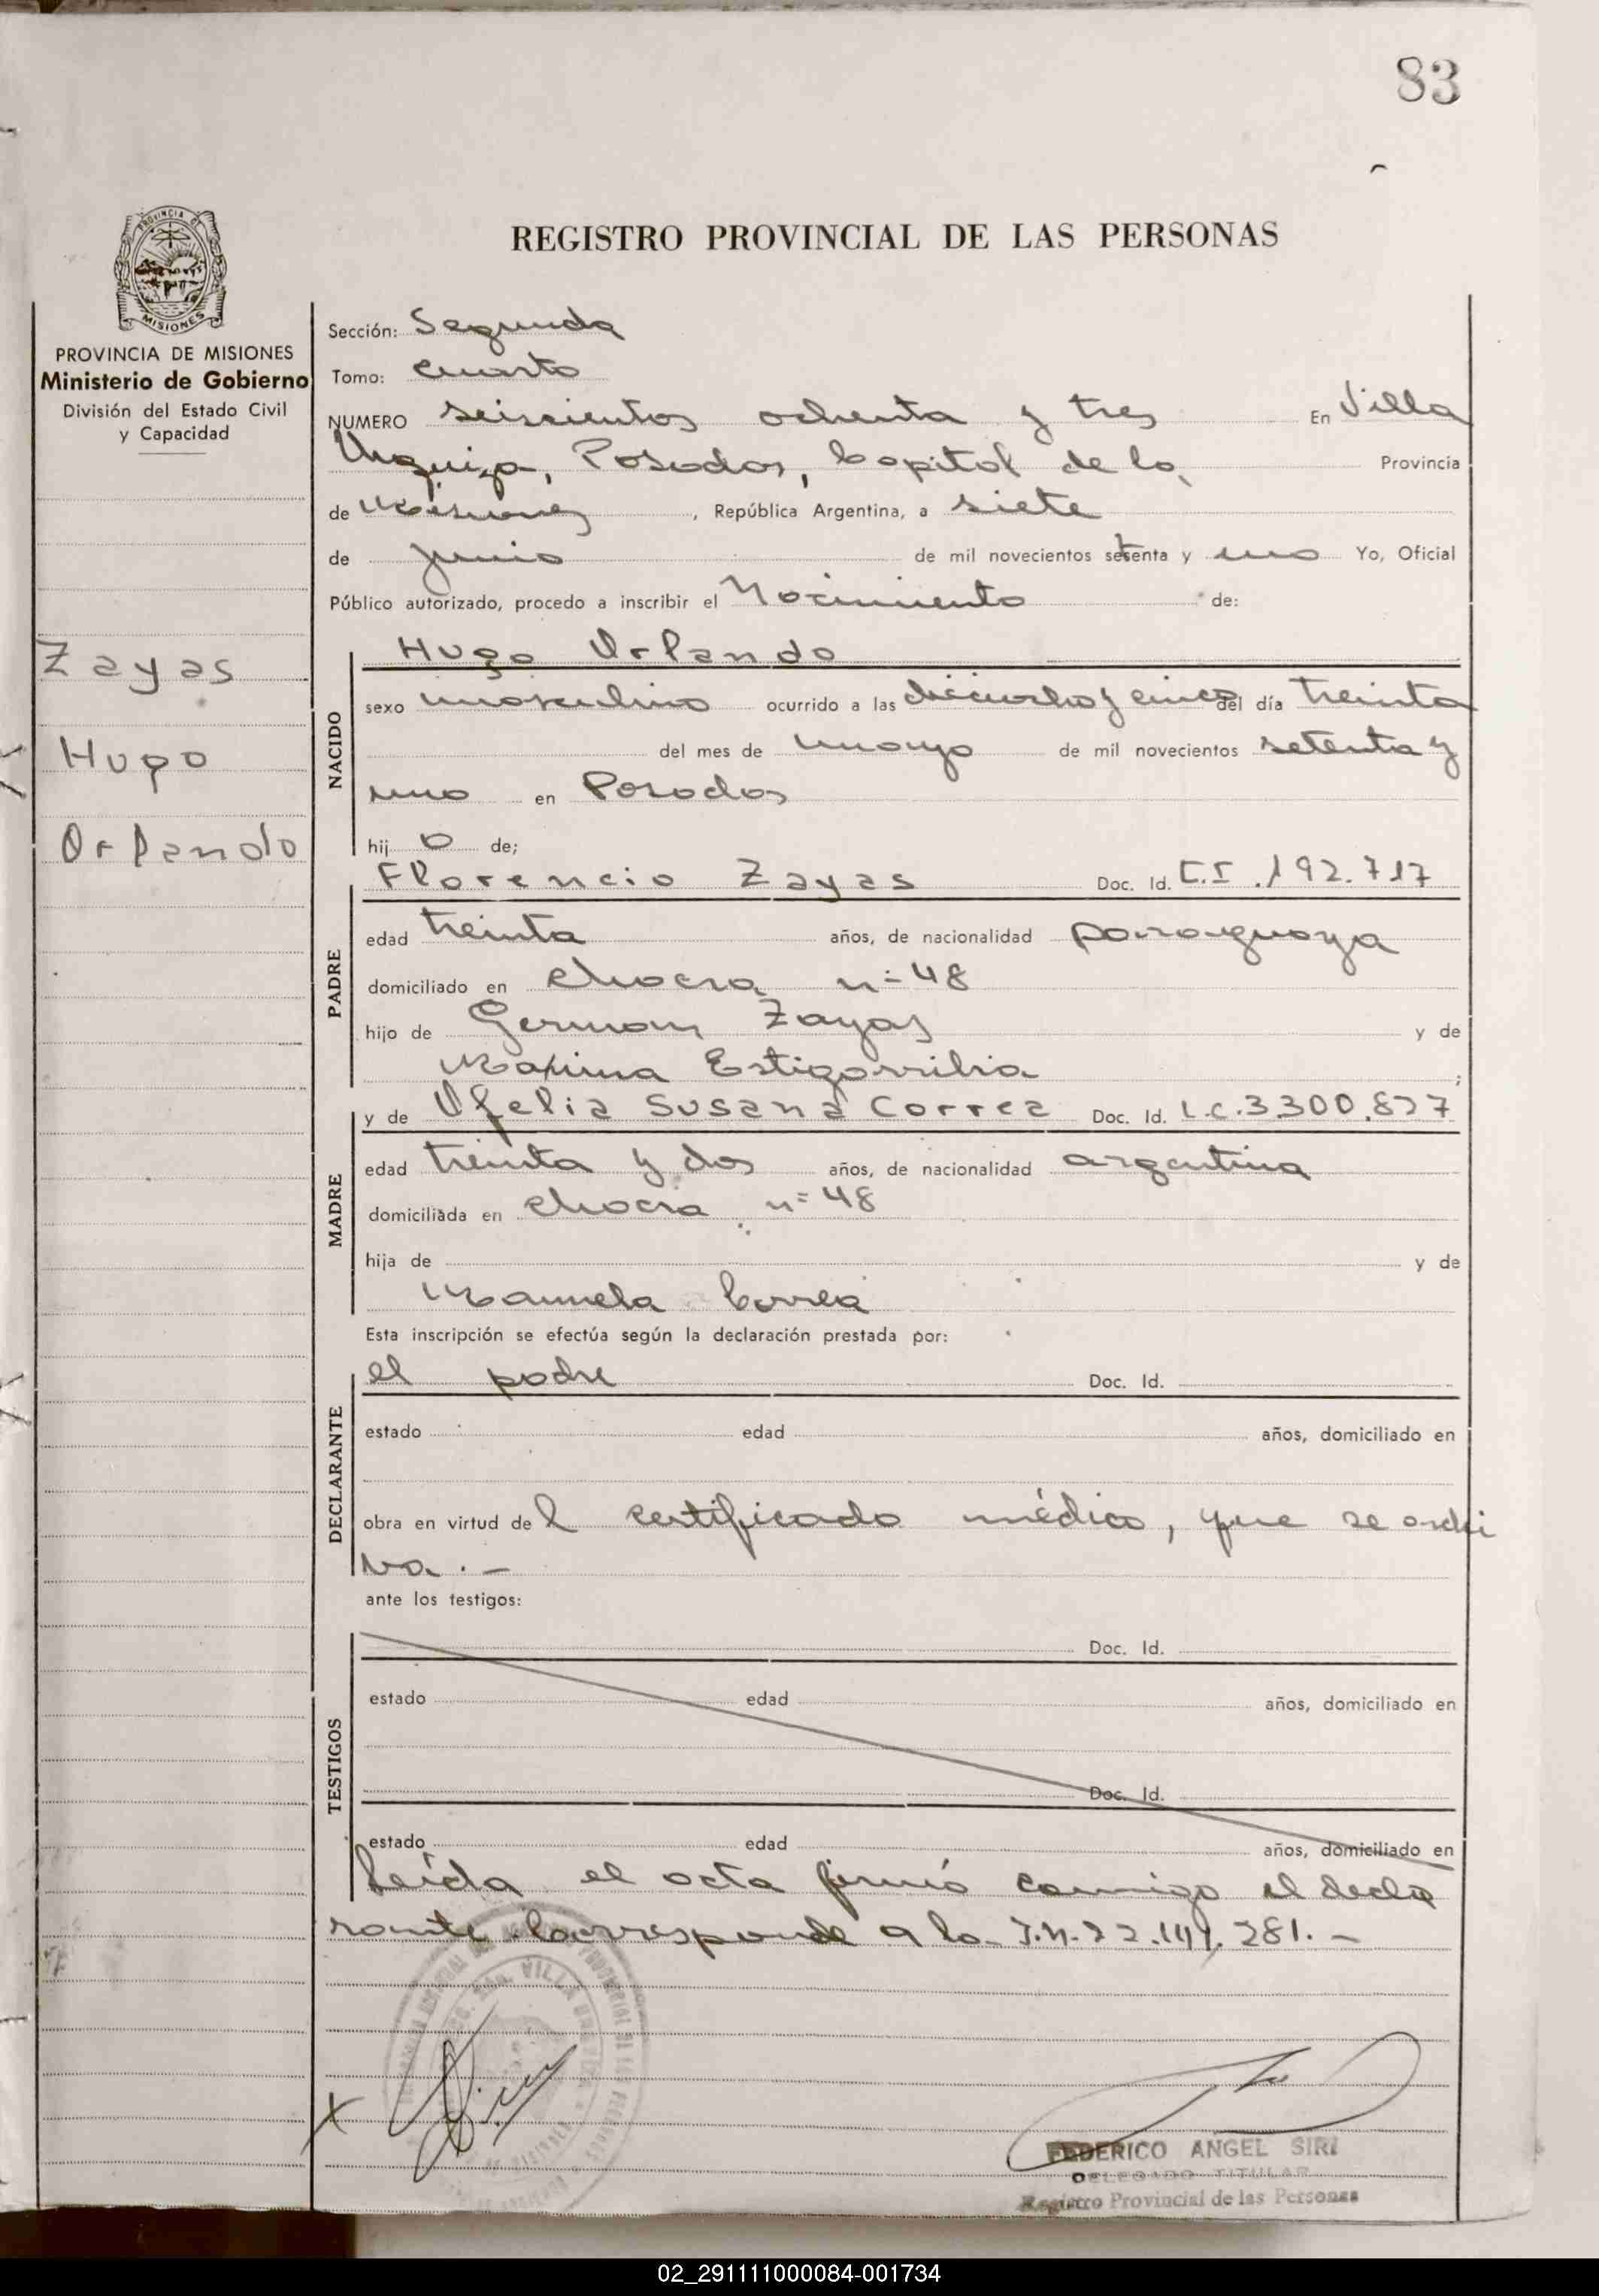 83
REGISTRO PROVINCIAL DE LAS PERSONAS
PROVINCIA DE MISIONES
Ministerio de Gobierno
División del Estado Civil
y Capacidad
Zayas
Hugo
Orlando
Sección: Segunda
Tomo: cuarto
NUMERO seiscientos ochenta y tres En Villa
Urquiza, Posadas, Capital de la Provincia
de Misiones, República Argentina, a siete
de junio de mil novecientos setenta y uno Yo, Oficial
Público autorizado, procedo a inscribir el Nacimiento de:
Hugo Orlando
NACIDO
sexo masculino ocurrido a las dieciocho y cinco del día treinta
del mes de mayo de mil novecientos setenta y
uno en Posadas
hijo de;
Florencio Zayas Doc. Id. C.I. 192.717
PADRE
edad treinta años, de nacionalidad paraguaya
domiciliado en chacra n=48
hijo de German Zayas y de
Maxima Estigarribia;
y de Ofelia Susana Correa Doc. Id. L.C.3.300.877
MADRE
edad treinta y dos años, de nacionalidad argentina
domiciliada en chacra n=48
hija de y de
Manuela Correa
Esta inscripción se efectúa según la declaración prestada por:
el padre Doc. Id.
DECLARANTE
estado edad años, domiciliado en
obra en virtud del certificado médico, que se archi
va.-
ante los testigos:
Doc. Id.
TESTIGOS
estado edad años, domiciliado en
Doc. Id.
estado edad años, domiciliado en
Leída el acta firmó conmigo el decla
rante. Corresponde a la
FEDERICO ANGEL SIRI
DELEGADO TITULAR
Registro Provincial de las Personas
02_291111000084-001734